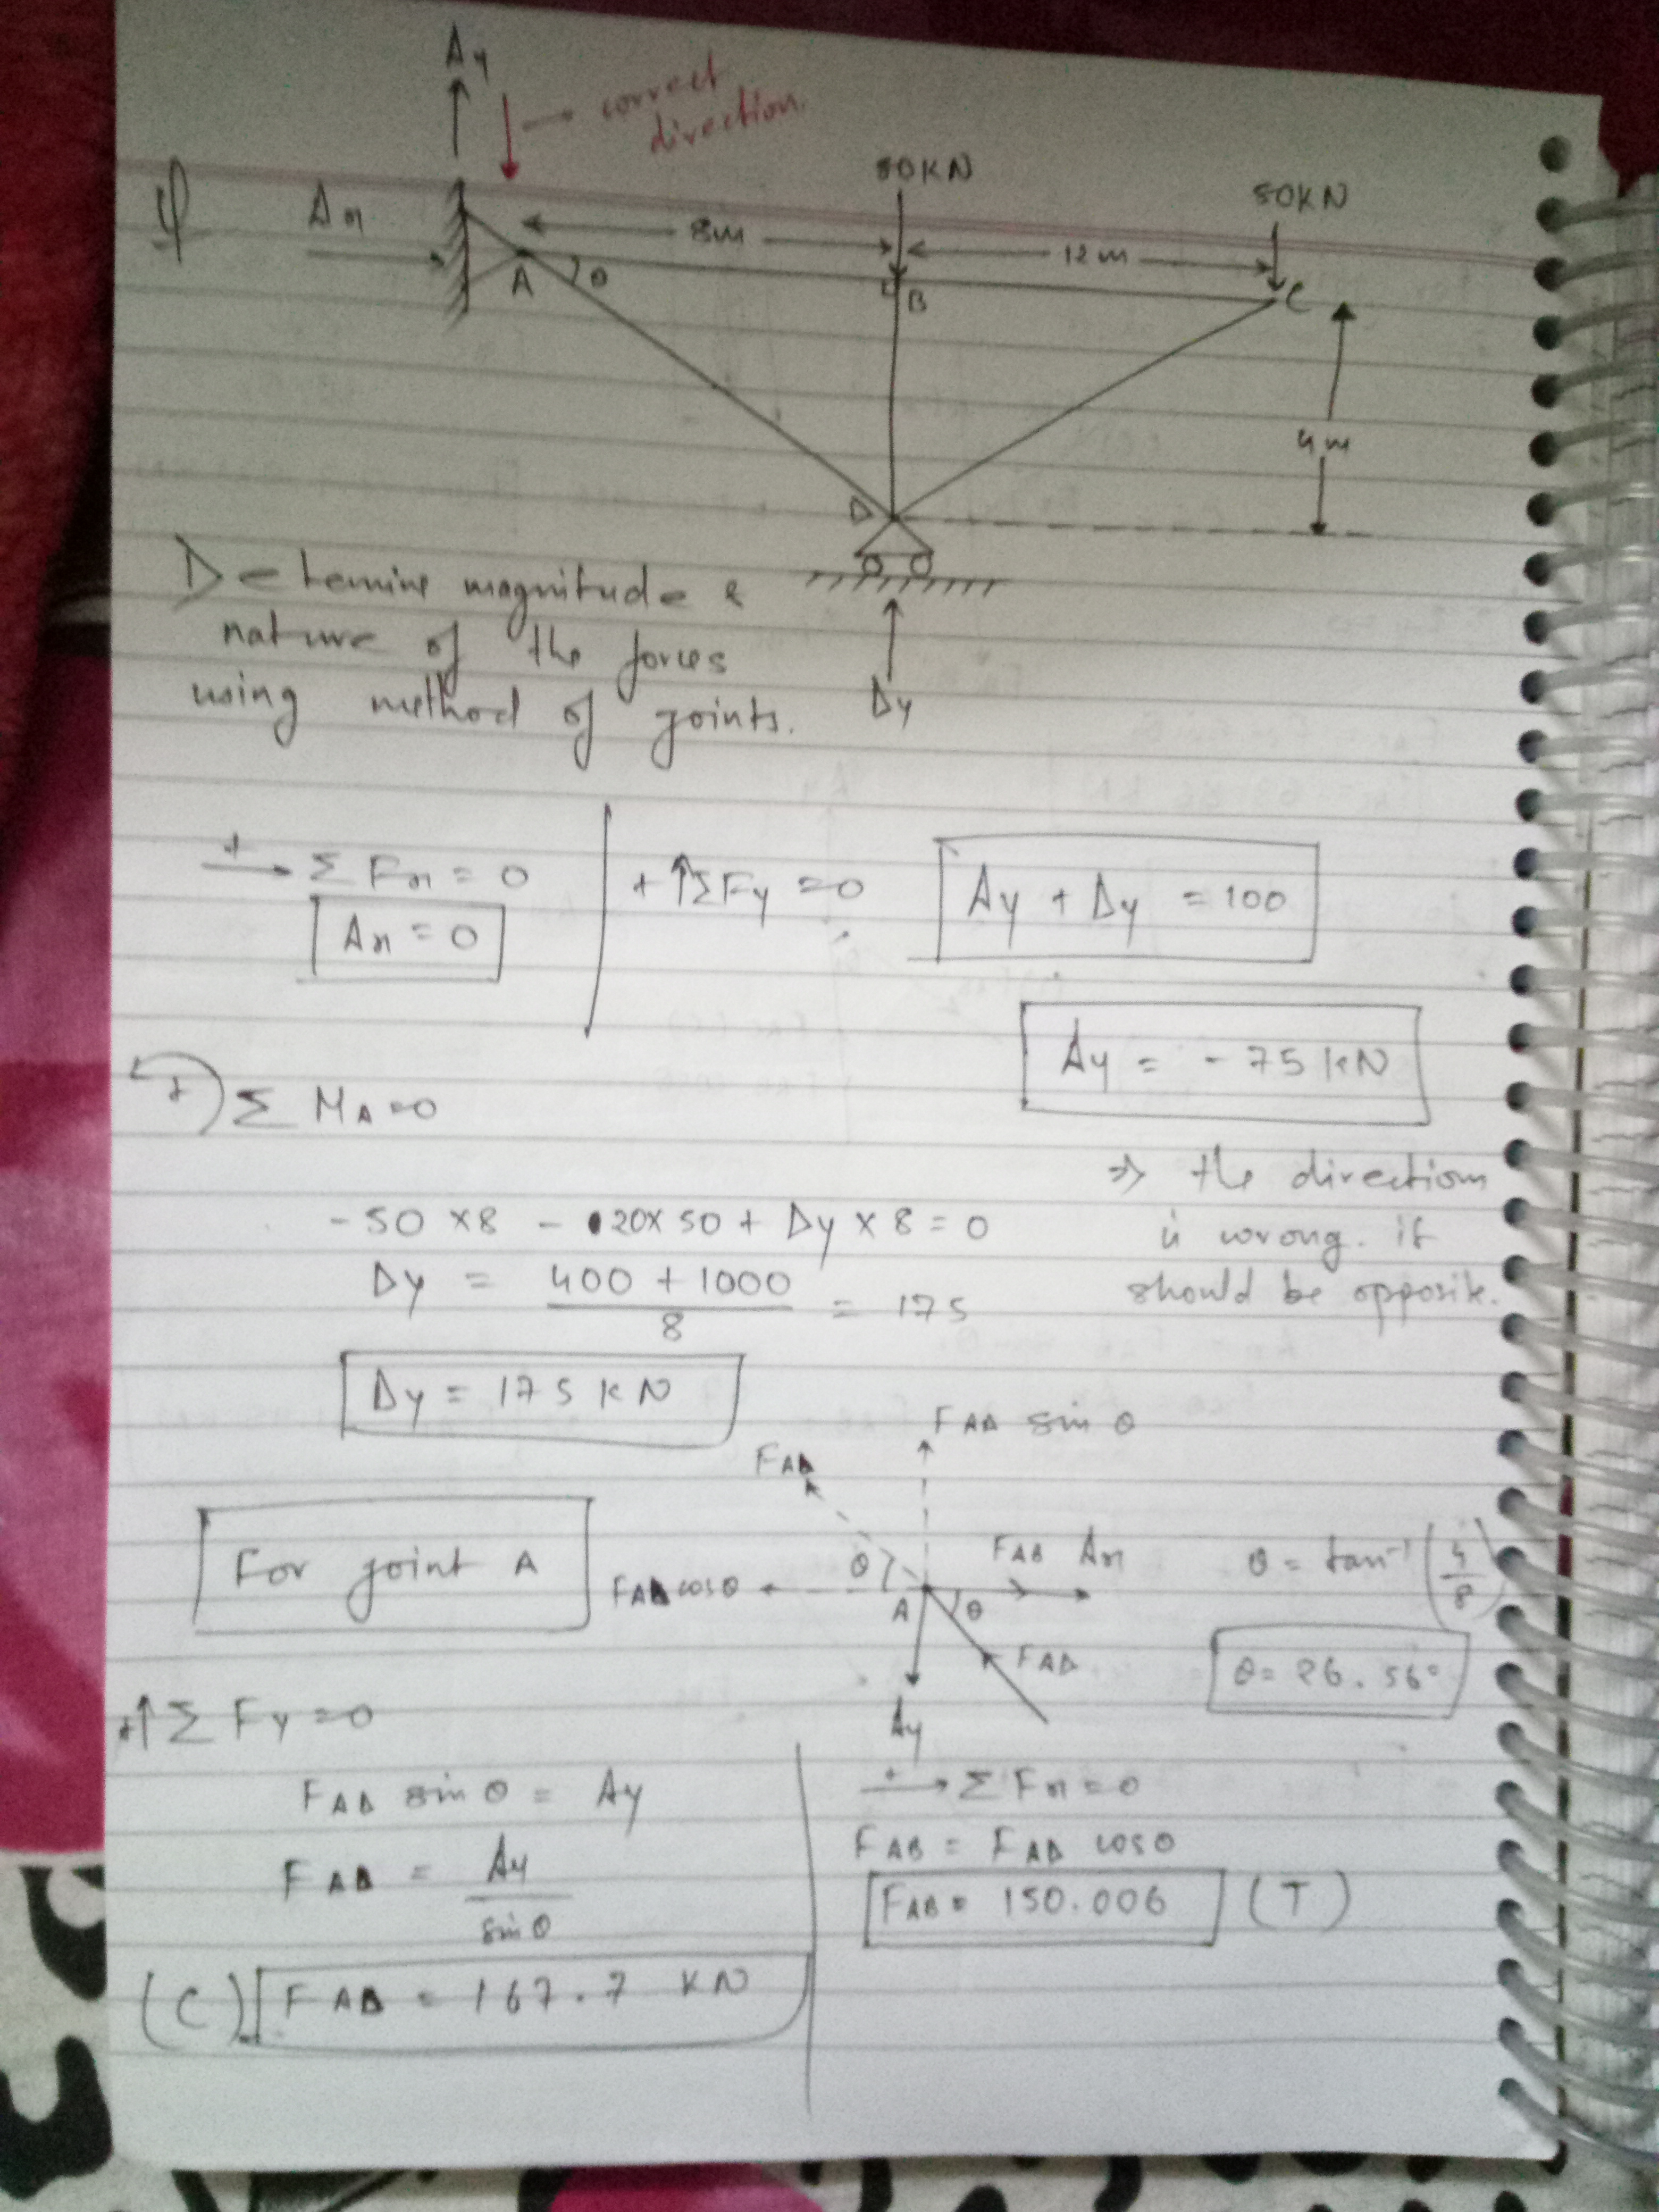 Ay
→ correct
direction.
50KN
50KN
φ
Ax
8m
12m
A
θ
B
C
4m
D
Determine magnitude &
nature of the forces
using method of joints.
Dy
+ Σ Fx = 0
+↑ΣFy = 0
Ay + Dy = 100
Ax = 0
Ay = -75 KN
+ Σ MA = 0
⇒ the direction
is wrong. it
should be opposite.
-50 × 8 - 20 × 50 + Dy × 8 = 0
Dy = 400 + 1000 / 8 = 175
Dy = 175 KN
FAD sin θ
FAD
For joint A
FAD cosθ
θ
FAB Ax
θ = tan⁻¹ (4/8)
A
θ
FAD
θ = 26.56°
Ay
+↑ Σ Fy = 0
FAD sin θ = Ay
FAD = Ay / sin θ
(C) FAD = 167.7 KN
+→ Σ Fx = 0
FAB = FAD cosθ
FAB = 150.006 (T)